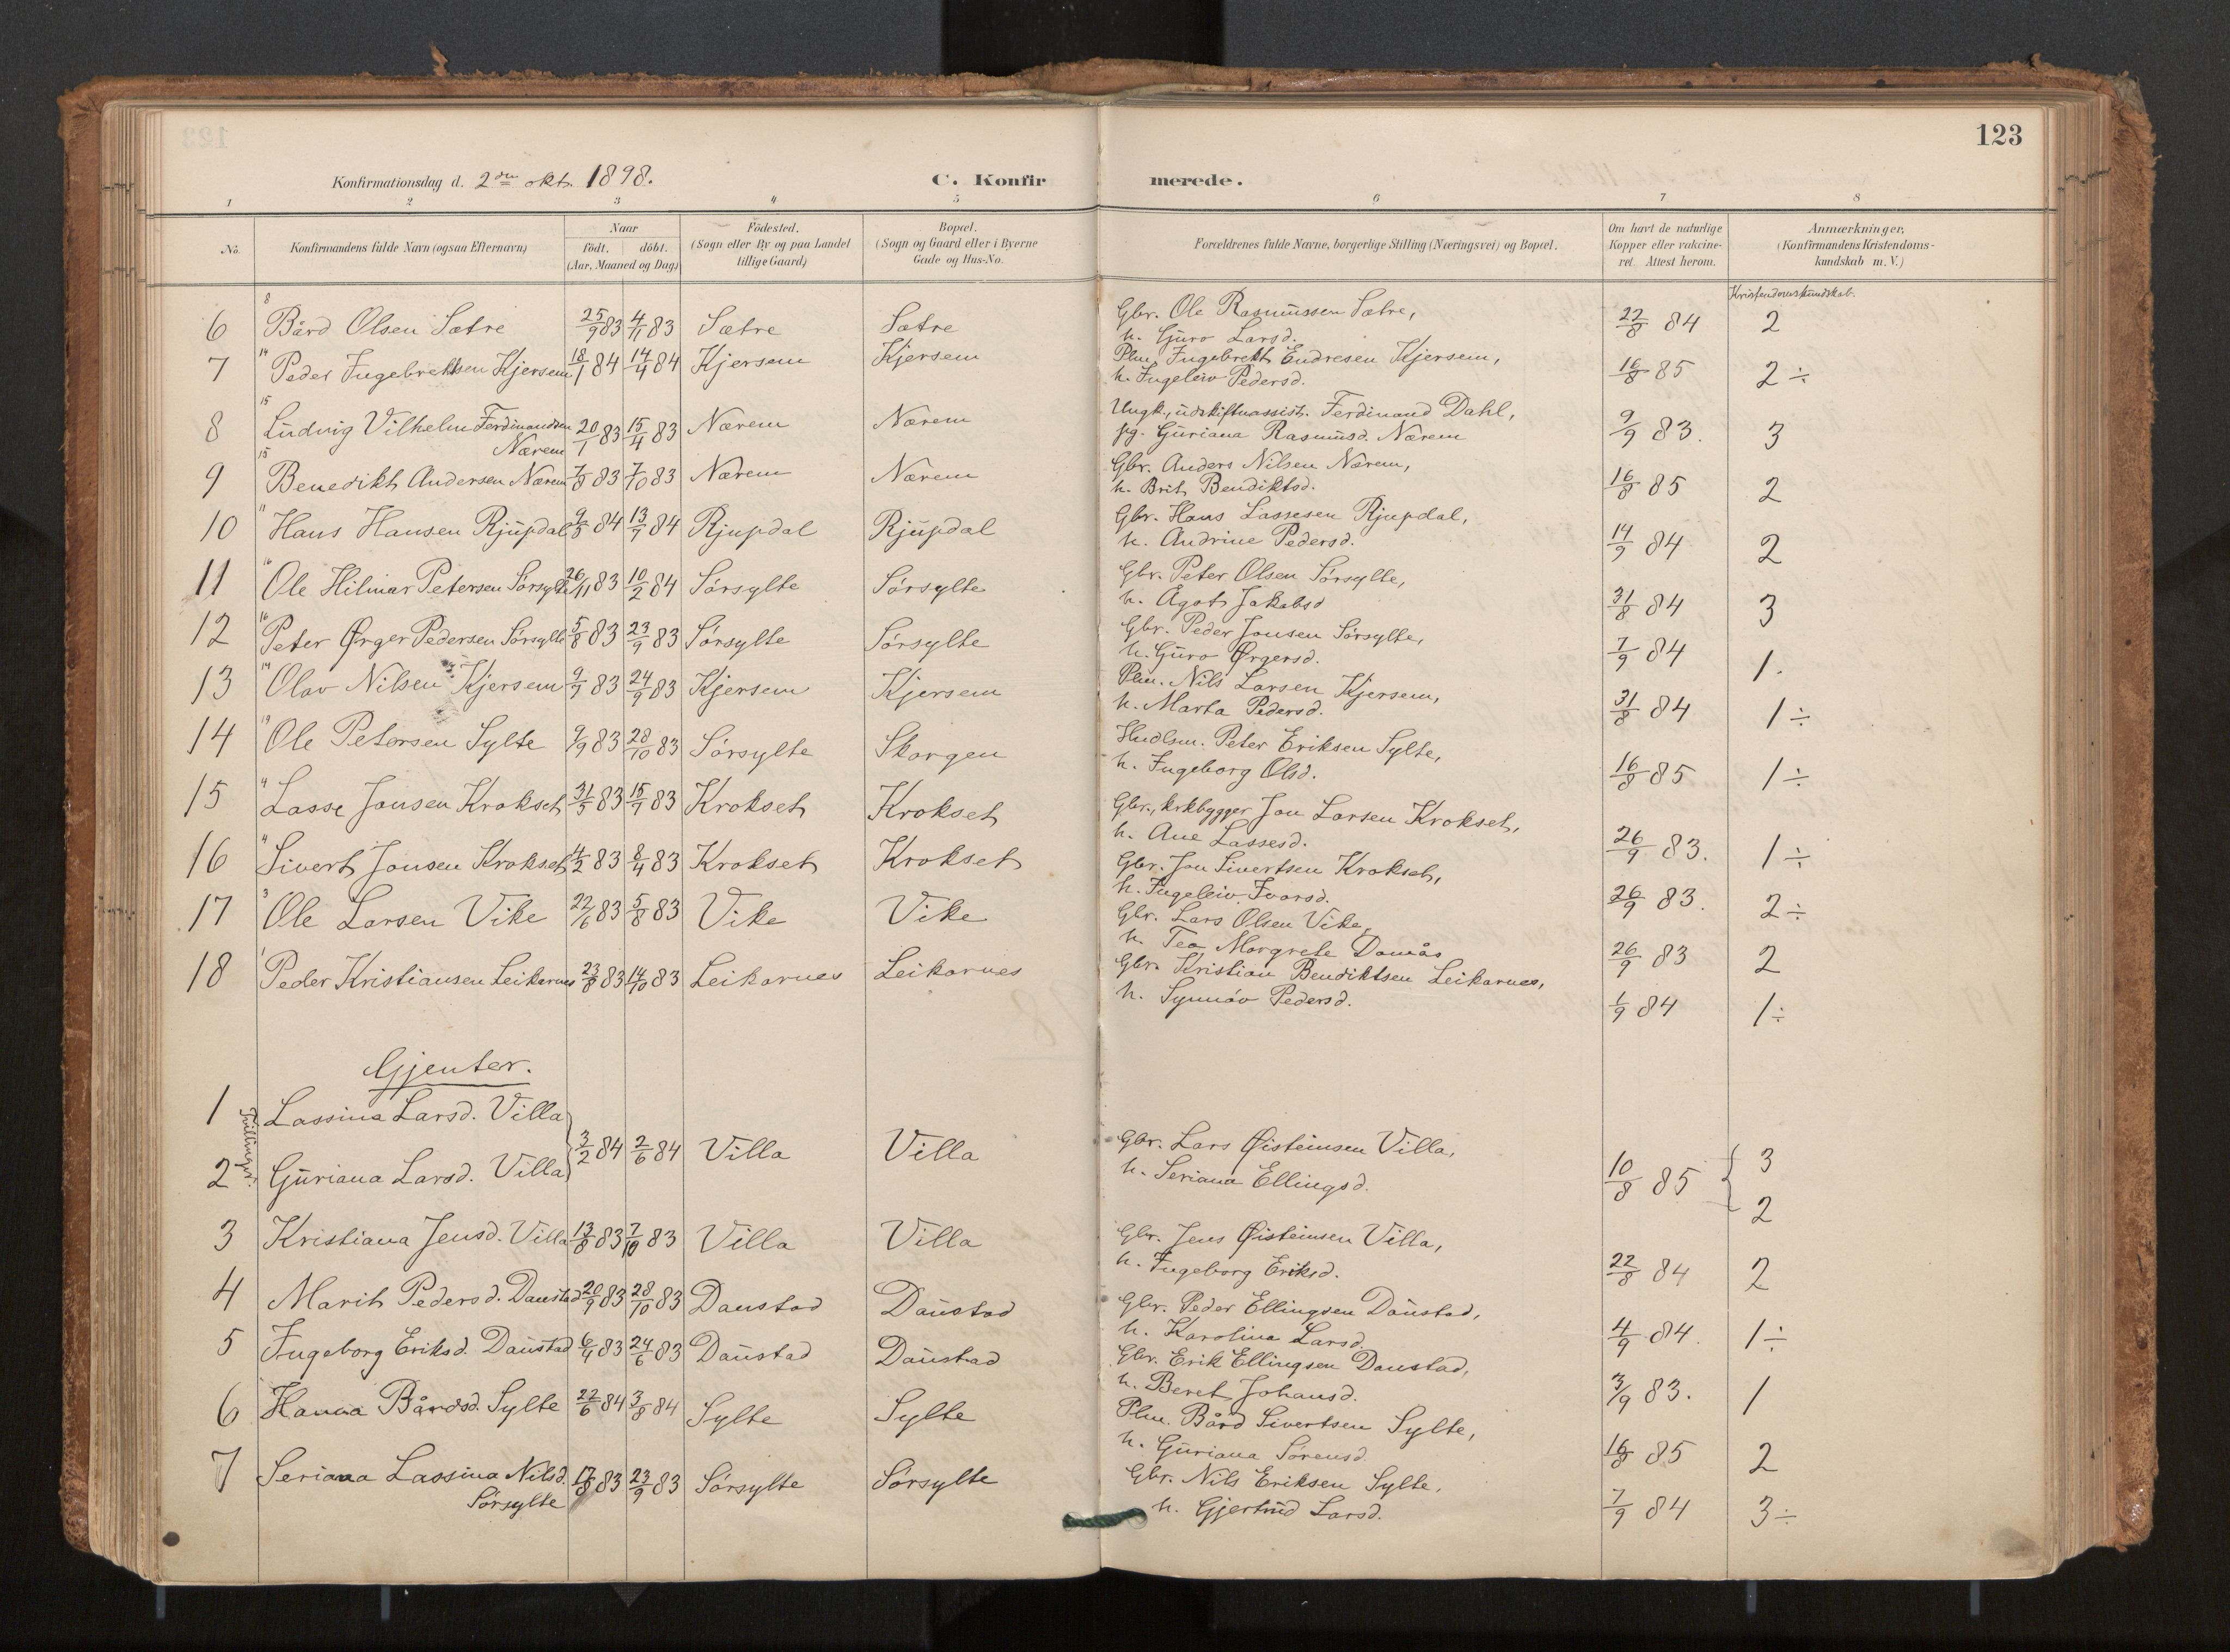 123
Konfirmationsdag d. 2den okt. 1898.
C. Konfir merede.
1 2 3 4 5 6 7 8
No. Konfirmandens fulde Navn (ogsaa Efternavn) Naar födt. döbt. (Aar, Maaned og Dag) Födested. (Sogn eller By og paa Landet tillige Gaard) Bopæl. (Sogn og Gaard eller i Byerne Gade og Hus-No. Forældrenes fulde Navne, borgerlige Stilling (Næringsvei) og Bopæl. Om havt de naturlige Kopper eller vakcineret. Attest herom. Anmærkninger. (Konfirmandens Kristendomskundskab m. V.)
Kristendomskundskab.
6 8 Bård Olsen Sætre 25/9 83 4/11 83 Sætre Sætre Gbr. Ole Rasmussen Sætre, 22/8 84 2
h. Guro Larsd.
7 14 Peder Ingebrektsen Kjersem 18/1 84 14/4 84 Kjersem Kjersem Plm. Ingebrekt Endresen Kjersem, 16/8 85 2 ÷
h. Ingeleiv Pedersd.
8 15 Ludvig Vilhelm Ferdinandsen 20/1 83 15/4 83 Nærem Nærem Ungk., udskiftnassist. Ferdinand Dahl, 9/9 83. 3
Nærem pg. Guriana Rasmusd. Nærem
9 15 Benedikt Andersen Nærem 7/8 83 7/10 83 Nærem Nærem Gbr. Anders Nilsen Nærem, 16/8 85 2
h. Brit Bendiktsd.
10 11 Hans Hansen Rjupdal 9/5 84 13/7 84 Rjupdal Rjupdal Gbr. Hans Lassesen Rjupdal, 14/9 84 2
h. Andrine Pedersd.
11 16 Ole Hilmar Petersen Sörsylte 26/11 83 10/2 84 Sörsylte Sörsylte Gbr. Peter Olsen Sörsylte, 31/8 84 3
h. Ågot Jakobsd
12 16 Peter Ørger Pedersen Sörsylte 5/8 83 23/9 83 Sörsylte Sörsylte Gbr. Peder Jonsen Sörsylte, 7/9 84 1.
h. Guro Ørgersd.
13 14 Olav Nilsen Kjersem 9/7 83 24/9 83 Kjersem Kjersem Plm. Nils Larsen Kjersem, 31/8 84 1 ÷
h. Marta Pedersd.
14 19 Ole Petersen Sylte 9/9 83 28/10 83 Sörsylte Skorgen Hndlsm. Peter Eriksen Sylte, 16/8 85 1 ÷
h. Ingeborg Olsd.
15 4 Lasse Jonsen Krokset 31/5 83 15/7 83 Krokset Krokset Gbr., kirkbygger Jon Larsen Krokset, 26/9 83. 1 ÷
h. Ane Lassesd.
16 11 Sivert Jonsen Krokset 4/2 83 8/4 83 Krokset Krokset Gbr. Jon Sivertsen Krokset, 26/9 83. 2 ÷
h. Ingeleiv Ivarsd.
17 3 Ole Larsen Vike 22/6 83 5/8 83 Vike Vike Gbr. Lars Olsen Vike, 26/9 83 2
h. Tea Margrete Damås
18 1 Peder Kristiansen Leikarnes 23/8 83 14/10 83 Leikarnes Leikarnes Gbr. Kristian Bendiktsen Leikarnes, 1/9 84 1 ÷
h. Synnöv Pedersd.
Gjenter.
Tvillinger.
1 Lassina Larsd. Villa 3/2 84 2/6 84 Villa Villa Gbr. Lars Øisteinsen Villa, 10/8 85 3
2 Guriana Larsd. Villa h. Seriana Ellingsd. 2
3 Kristiana Jensd. Villa 13/8 83 7/10 83 Villa Villa Gbr. Jens Øisteinsen Villa, 22/8 84 2
h. Ingeborg Eriksd.
4 Marit Pedersd. Daustad 20/9 83 28/10 83 Daustad Daustad Gbr. Peder Ellingsen Daustad, 4/9 84. 1 ÷
h. Karolina Larsd.
5 Ingeborg Eriksd. Daustad 6/4 83 24/6 83 Daustad Daustad Gbr. Erik Ellingsen Daustad, 3/9 83. 1
h. Beret Johansd.
6 Hanna Bårdsd. Sylte 22/6 84 3/8 84 Sylte Sylte Plm. Bård Sivertsen Sylte, 16/8 85 2
h. Guriana Sörensd.
7 Seriana Lassina Nilsd. 17/8 83 23/9 83 Sörsylte Sörsylte Gbr. Nils Eriksen Sylte, 7/9 84 3 ÷
Sörsylte h. Gjertrud Larsd.